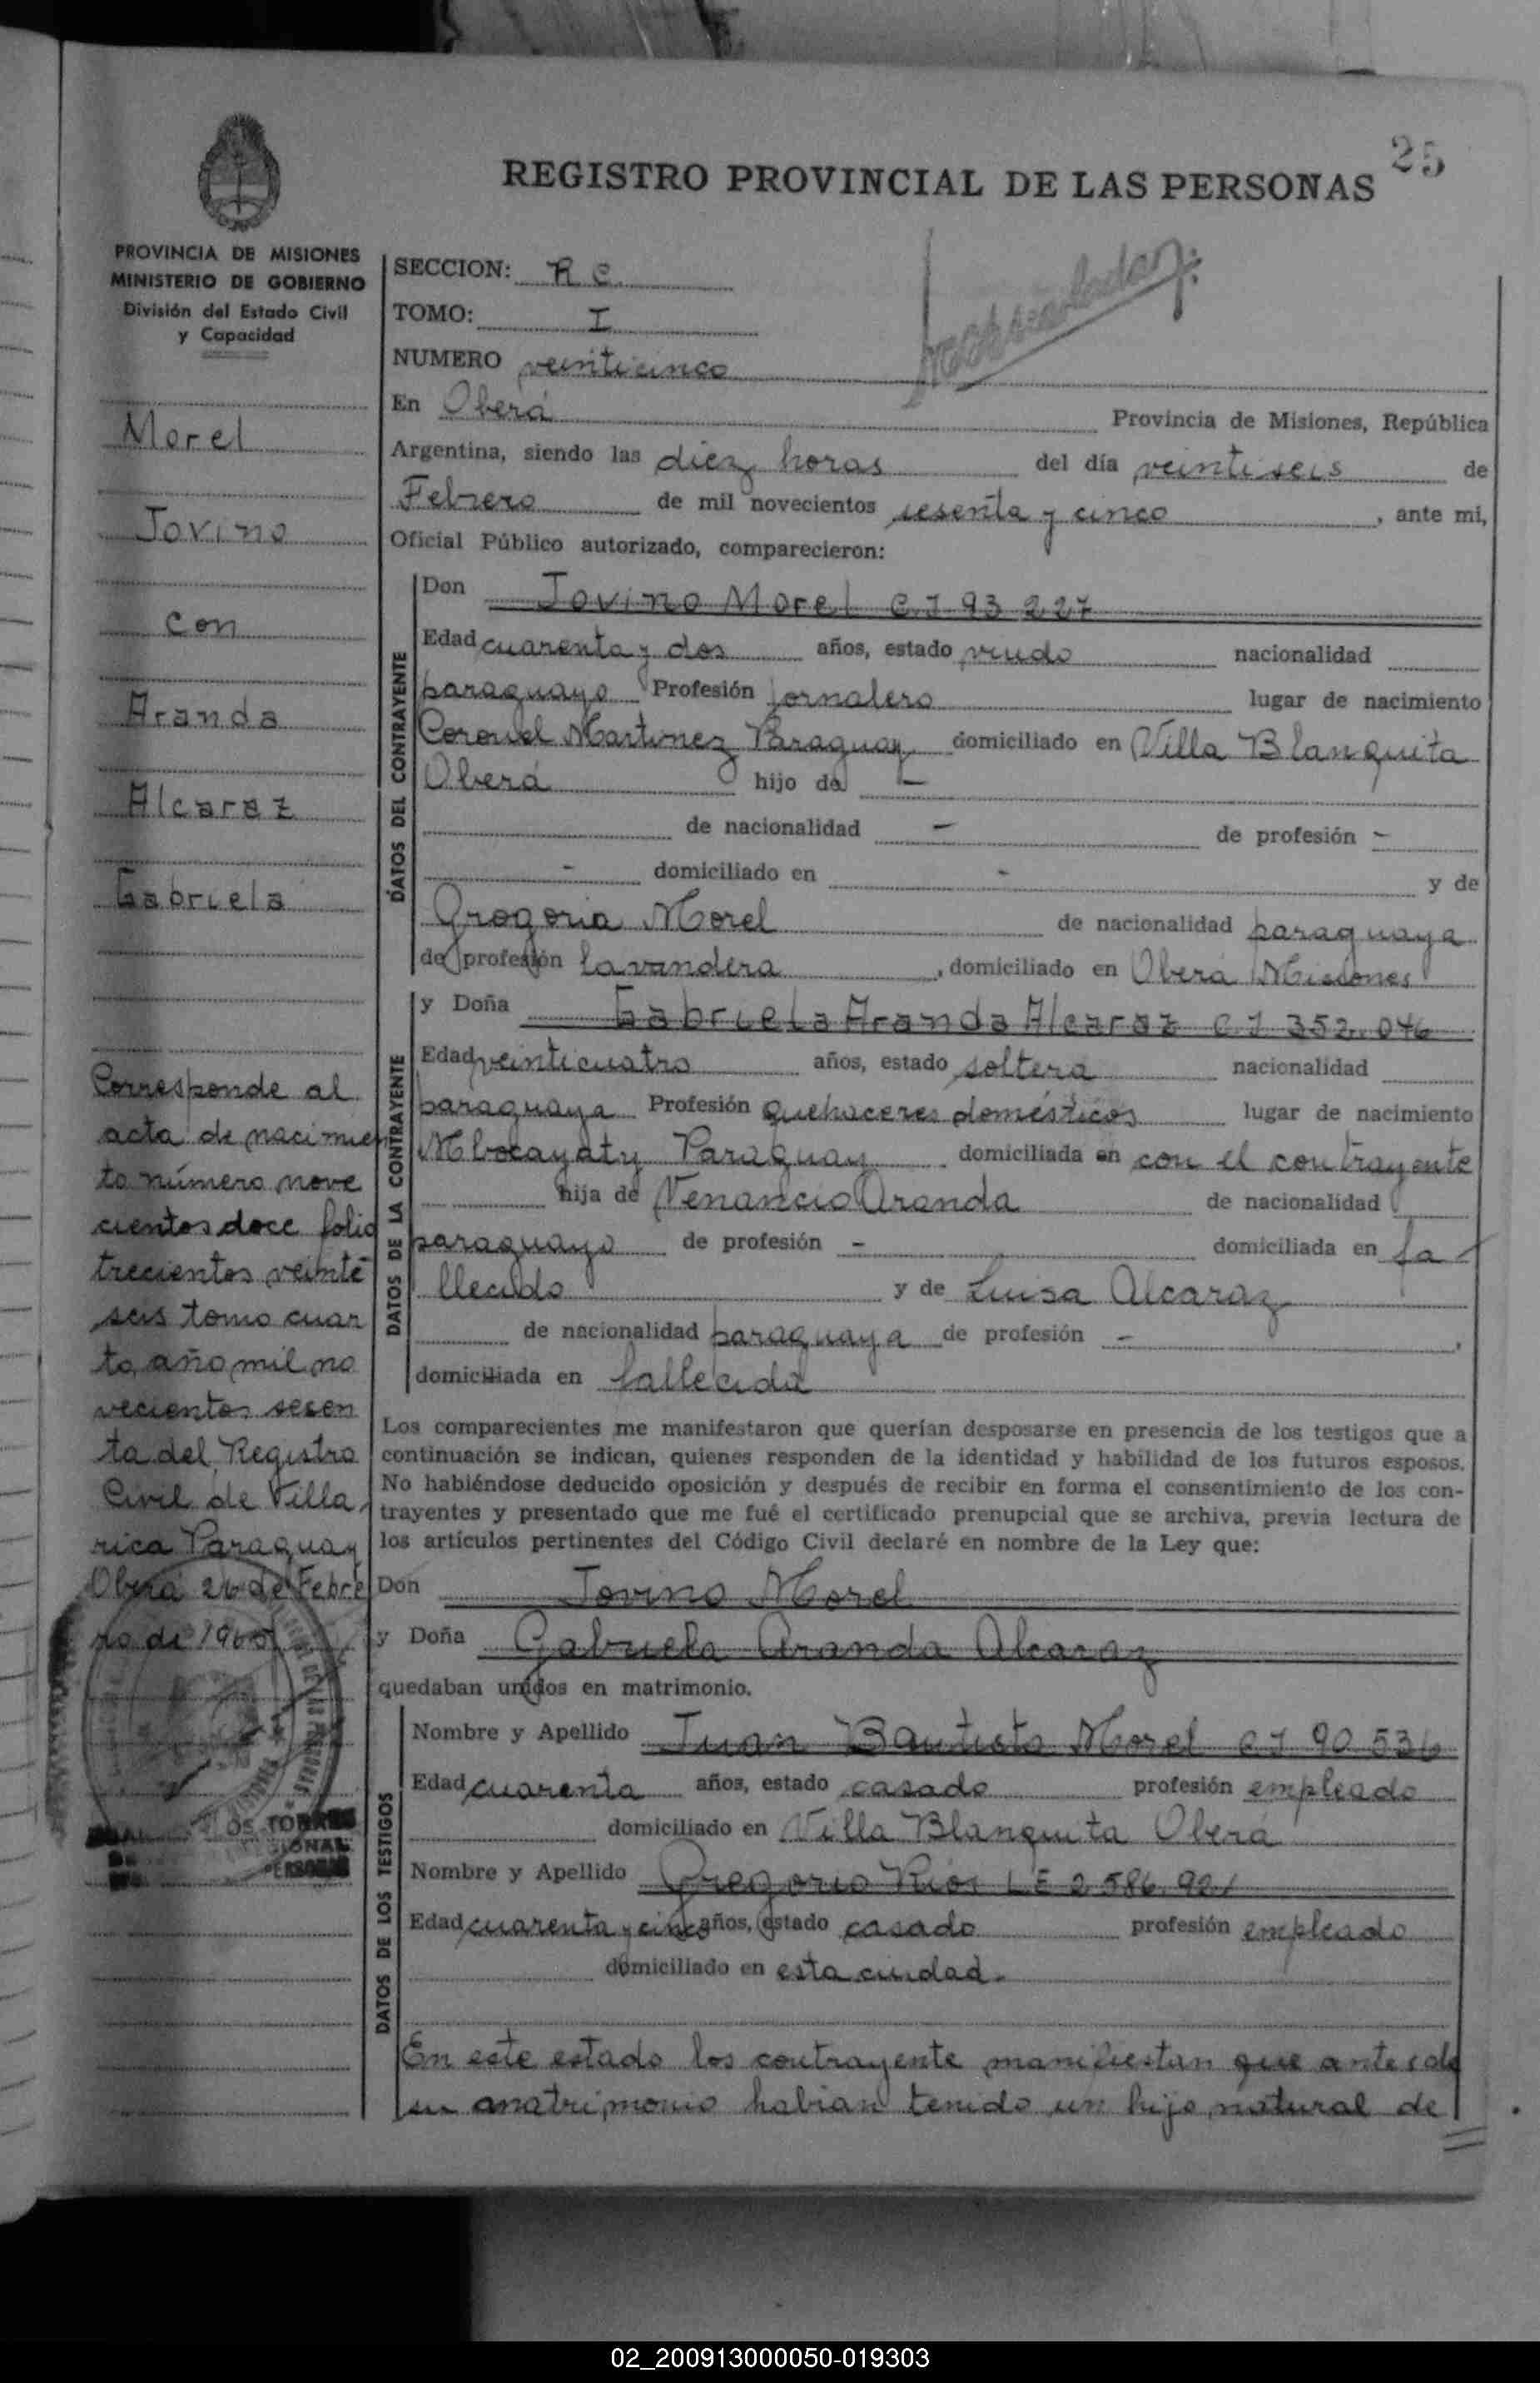 25
REGISTRO PROVINCIAL DE LAS PERSONAS
PROVINCIA DE MISIONES
MINISTERIO DE GOBIERNO
División del Estado Civil
y Capacidad
Morel
Jovino
con
Aranda
Alcaraz
Gabriela
Corresponde al
acta de nacimien
to número nove
cientos doce folio
trecientos veinte
seis tomo cuar
to, año mil no
vecientos sesen
ta del Registro
Civil de Villa
rica Paraguay
Oberá 26 de Febre
ro de 1965
SECCION: R C.
TOMO: I
NUMERO veinticinco
En Oberá Provincia de Misiones, República
Argentina, siendo las diez horas del día veintiseis de
Febrero de mil novecientos sesenta y cinco, ante mi,
Oficial Público autorizado, comparecieron:
DATOS DEL CONTRAYENTE
Don Jovino Morel C.I 93 227
Edad cuarenta y dos años, estado viudo nacionalidad
paraguayo Profesión jornalero lugar de nacimiento
Coronel Martinez Paraguay domiciliado en Villa Blanquita
Oberá hijo de -
de nacionalidad - de profesión -
- domiciliado en - y de
Grogoria Morel de nacionalidad paraguaya
de profesión lavandera, domiciliado en Oberá Misiones
DATOS DE LA CONTRAYENTE
y Doña Gabriela Aranda Alcaraz C I 352.046
Edad veinticuatro años, estado soltera nacionalidad
paraguaya Profesión quehaceres domésticos lugar de nacimiento
Mbocayaty Paraguay domiciliada en con el contrayente
hija de Venancio Aranda de nacionalidad
paraguayo de profesión - domiciliada en fa
llecido y de Luisa Alcaraz
de nacionalidad paraguaya de profesión -,
domiciliada en fallecida
Los comparecientes me manifestaron que querían desposarse en presencia de los testigos que a
continuación se indican, quienes responden de la identidad y habilidad de los futuros esposos.
No habiéndose deducido oposición y después de recibir en forma el consentimiento de los con-
trayentes y presentado que me fué el certificado prenupcial que se archiva, previa lectura de
los artículos pertinentes del Código Civil declaré en nombre de la Ley que:
Don Jovino Morel
y Doña Gabriela Aranda Alcaraz
quedaban unidos en matrimonio.
DATOS DE LOS TESTIGOS
Nombre y Apellido Juan Bautista Morel C I 90 536
Edad cuarenta años, estado casado profesión empleado
domiciliado en Villa Blanquita Oberá
Nombre y Apellido Gregorio Rios L E 2 586 921
Edad cuarenta y cinco años, estado casado profesión empleado
domiciliado en esta ciudad.
En este estado los contrayente manifiestan que antes de
su matrimonio habian tenido un hijo natural de
02_200913000050-019303